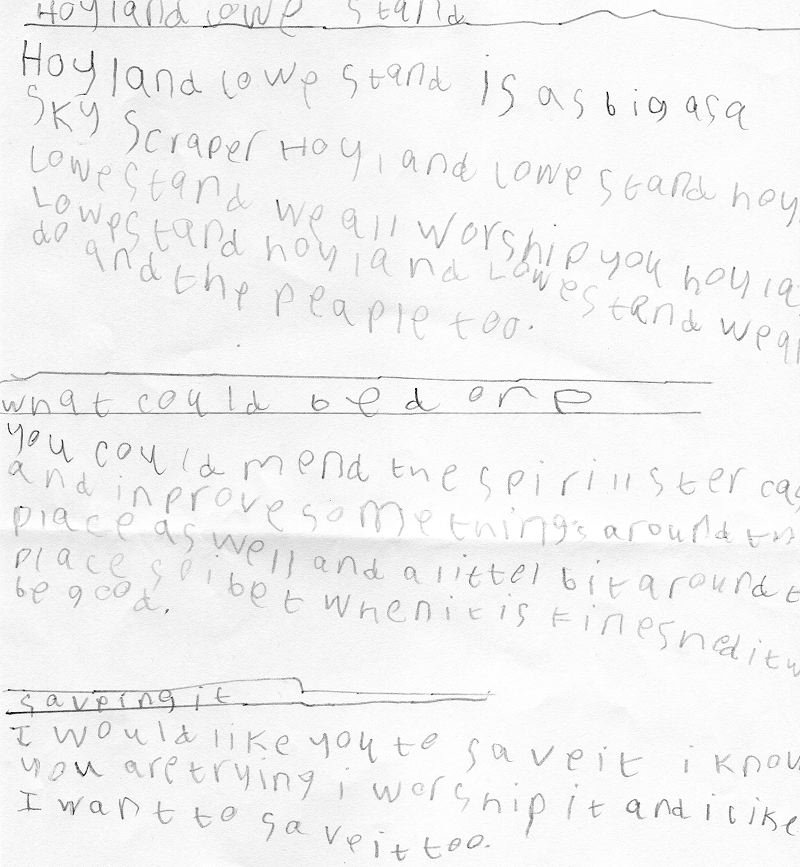 Hoyland Lowe Stand
Hoyland Lowe Stand is as big as a
SKy Scraper Hoyland Lowe Stand hoy
Lowe Stand we all worship you hoyla
Lowestand hoyland Lowestand weal
do and the peaple too.
what could be done
you could mend the spirill ster cas
and inprove some things around th
place as well and a littel bit around t
place so i bet when it is finesned it w
be good.
saveing it
I would like you to save it i know
you are trying i worship it and i like
I want to save it too.